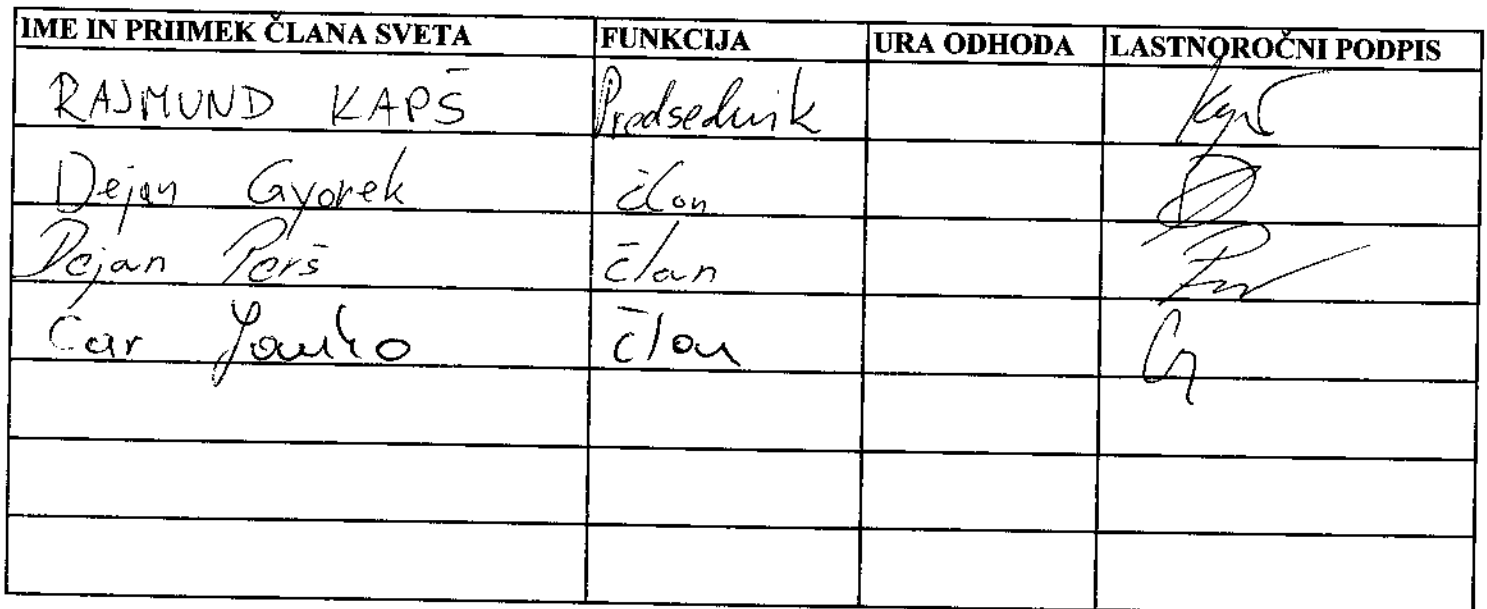 IME IN PRIIMEK ČLANA SVETA FUNKCIJA URA ODHODA LASTNOROČNI PODPIS
RAJMUND KAPŠ Predsednik
Dejan Gyorek član
Dejan Perš član
Car Janko član